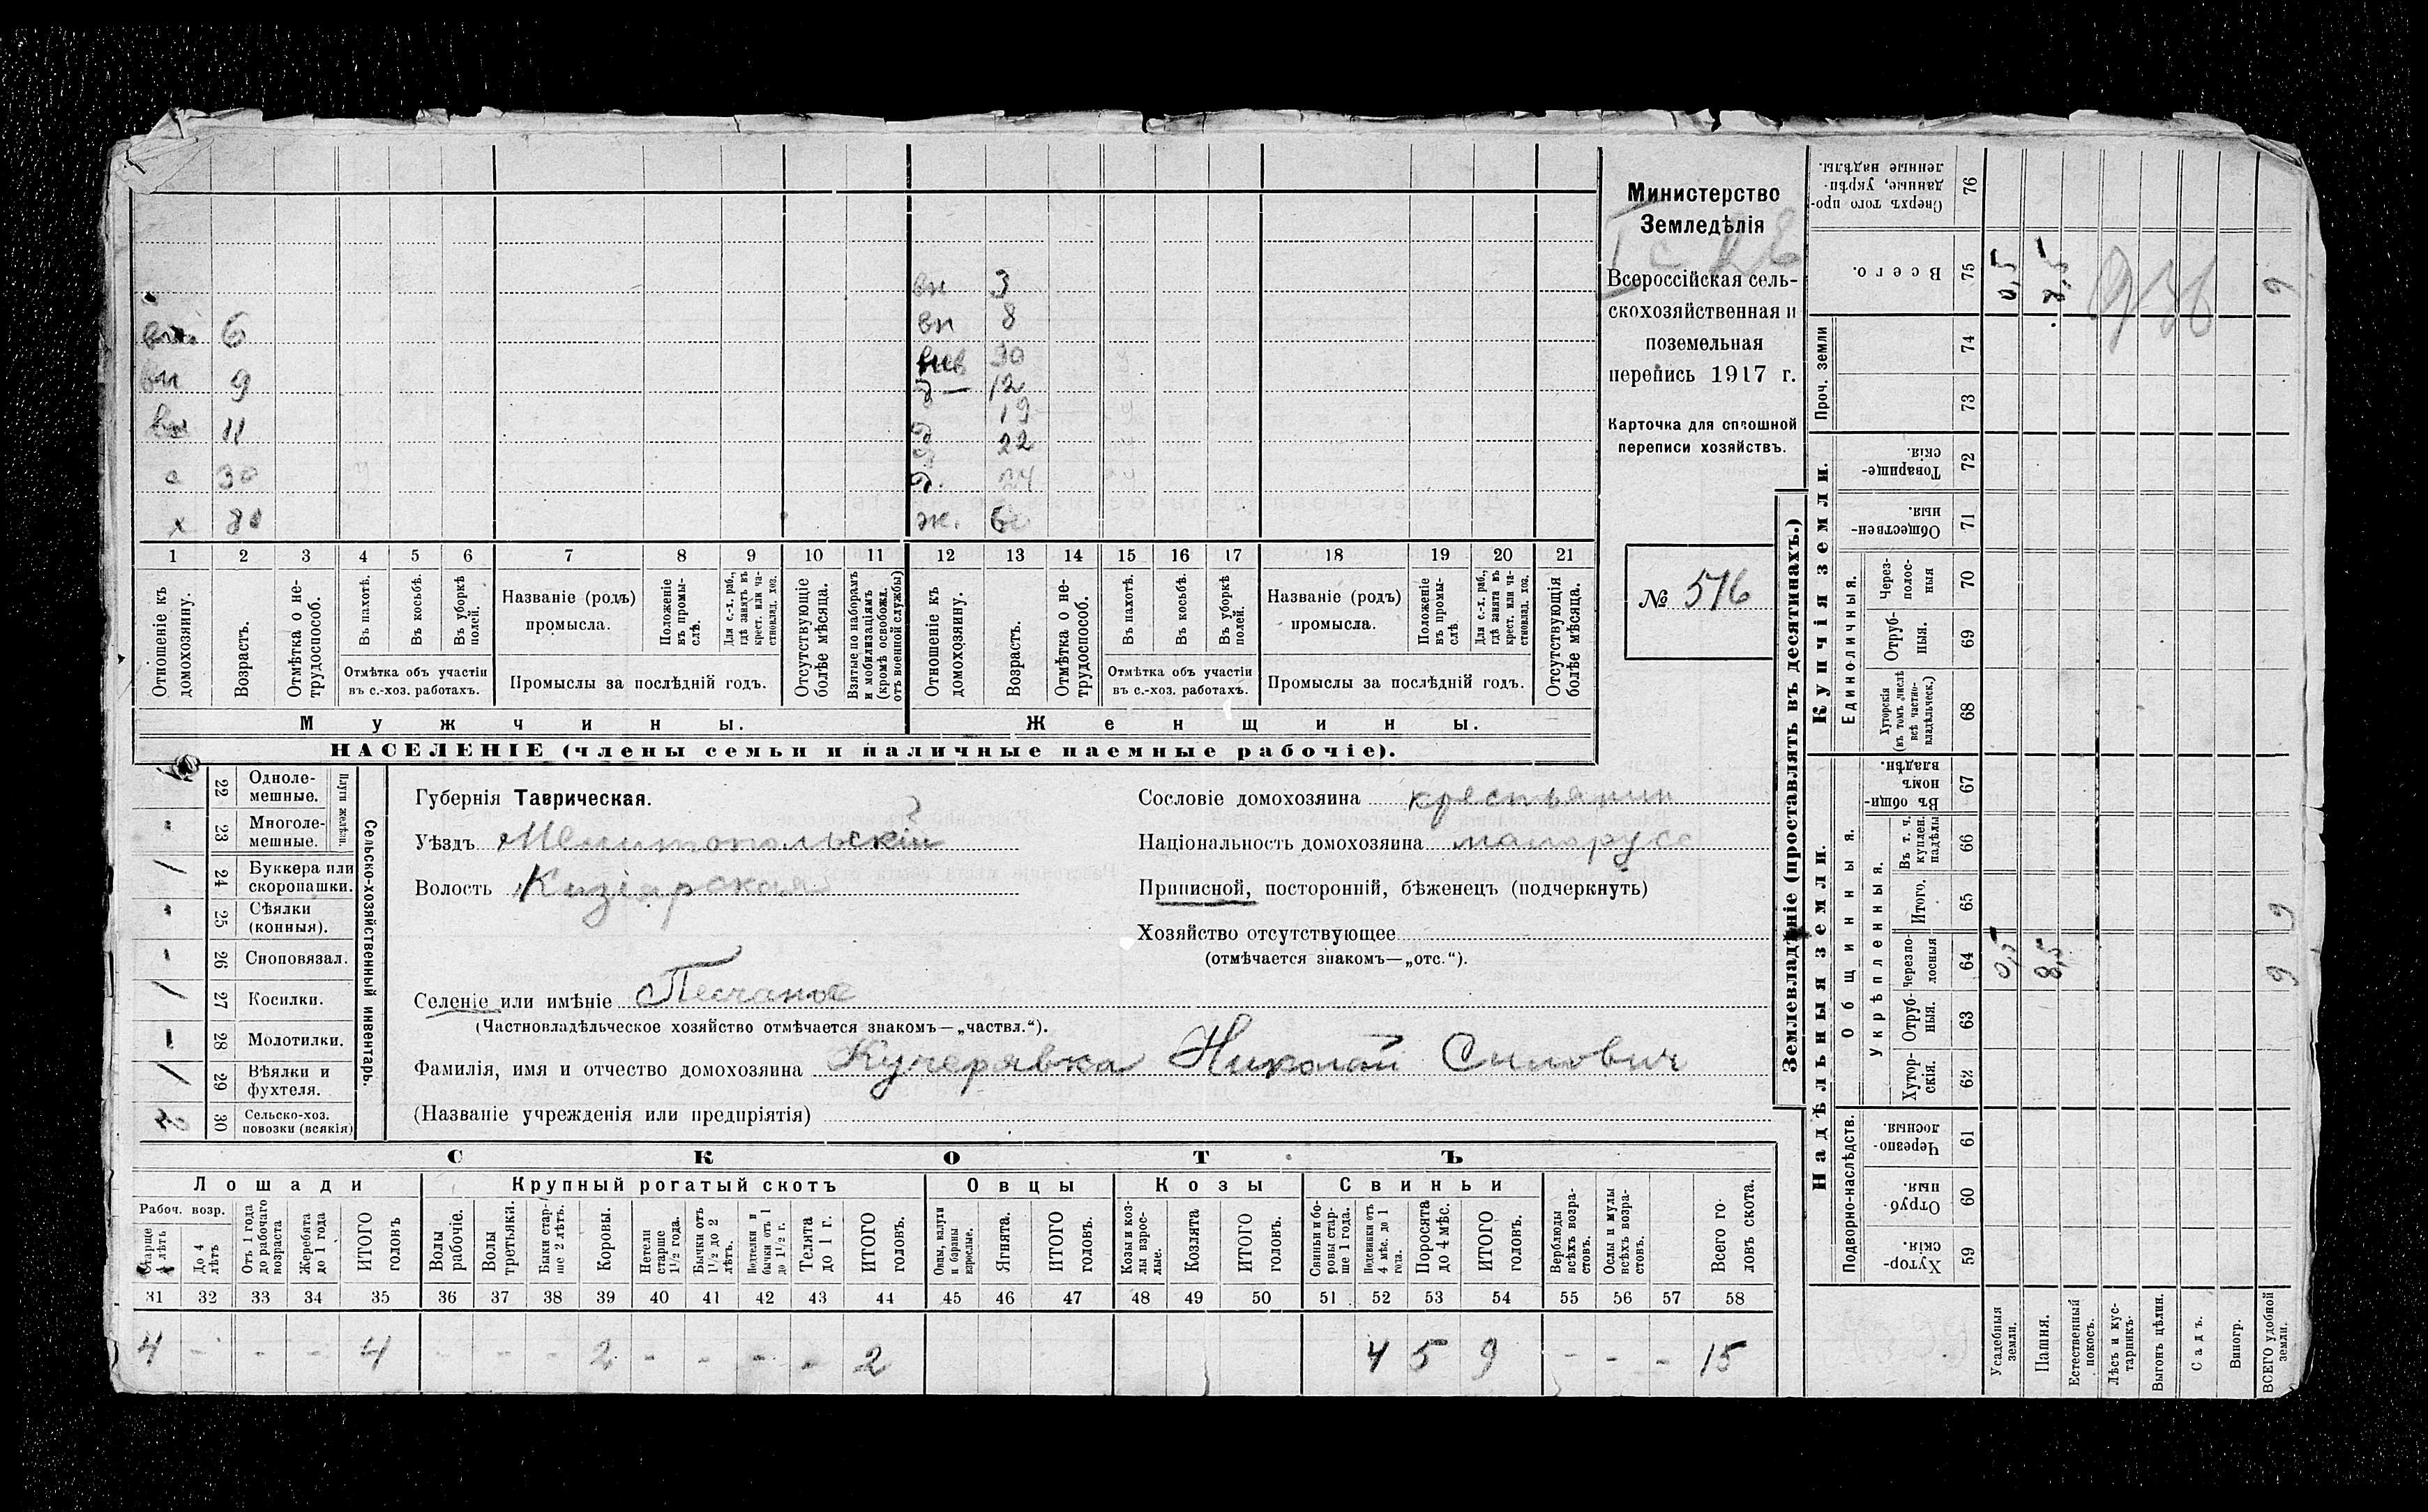 Министерство
Земледѣлія
Всероссійская сель-
скохозяйственная и
поземельная
перепись 1917 г.
Карточка для сплошной
переписи хозяйствъ.
№ 516
вн 3
вн 8
6
вн 9
11
с 30
х 80
30
д 12
д 19
д 22
д.
ж.
1 2 3 4 5 6 7 8 9 10 11 12 13 14 15 16 17 18 19 20 21
Отношеніе къ домохозяину.
Возрастъ.
Отмѣтка о не-трудоспособ.
Въ пахотѣ.
Въ косьбѣ.
Въ уборкѣ полей.
Отмѣтка объ участіи
въ с.-хоз. работахъ.
Названіе (родъ)
промысла.
Положеніе въ промы-слѣ.
Для с.-х. раб., гдѣ занятъ въ крест. или ча-стновлад. хоз.
Промыслы за послѣдній годъ.
Отсутствующіе болѣе мѣсяца.
Взятые по наборамъ и мобилизаціямъ (кромѣ освобожд. отъ военной службы)
Отношеніе къ домохозяину.
Возрастъ.
Отмѣтка о не-трудоспособ.
Въ пахотѣ.
Въ косьбѣ.
Въ уборкѣ полей.
Отмѣтка объ участіи
въ с.-хоз. работахъ.
Названіе (родъ)
промысла.
Положеніе въ промы-слѣ
Для с.-х. раб., гдѣ занята въ крест. или ча-стновлад. хоз.
Промыслы за послѣдній годъ.
Отсутствующія болѣе мѣсяца.
Мужчины.
Женщины.
НАСЕЛЕНІЕ (члены семьи и наличные наемные рабочіе).
Сельско-хозяйственный инвентарь.
Плуги желѣзн.
22 Одноле-мешные.
- 23 Многоле-мешные.
/ 24 Буккера или скоропашки.
- 25 Сѣялки (конныя).
- 26 Сноповязал.
/ 27 Косилки.
- 28 Молотилки.
/ 29 Вѣялки и фухтеля.
30 Сельско-хоз. повозки (всякія)
Губернія Таврическая.
Уѣздъ Мелитопольскій
Волость Кизіарская
Селеніе или имѣніе Песчаное
(Частновладѣльческое хозяйство отмѣчается знакомъ—„частвл.“).
Фамилія, имя и отчество домохозяина Кучерявка Николай Силович
(Названіе учрежденія или предпріятія)
Сословіе домохозяина крестьянин
Національность домохозяина малорусс
Приписной, посторонній, бѣженецъ (подчеркнуть)
Хозяйство отсутствующее
(отмѣчается знакомъ—„отс.“).
СКОТЪ
Лошади
Крупный рогатый скотъ
Овцы
Козы
Свиньи
Рабоч. возр.
Старше 4 лѣтъ
До 4 лѣтъ
Отъ 1 года до рабочаго возраста
Жеребята до 1 года
ИТОГО головъ
Волы рабочіе.
Волы третьяки.
Быки стар-ше 2 лѣтъ.
Коровы.
Нетели старше 1½ года.
Бычки отъ 1½ до 2 лѣтъ.
Подтелки и бычки отъ 1 до 1½ г.
Телята до 1 г.
ИТОГО головъ.
Овцы, валухи и бараны взрослые.
Ягнята.
ИТОГО головъ.
Козы и коз-лы взрос-лые.
Козлята
ИТОГО головъ.
Свиньи и бо-ровы стар-ше 1 года.
Подсвинки отъ 4 мѣс. до 1 года.
Поросята до 4 мѣс.
ИТОГО головъ.
Верблюды всѣхъ возра-стовъ.
Ослы и мулы всѣхъ возра-стовъ.
Всего го-ловъ скота.
31 32 33 34 35 36 37 38 39 40 41 42 43 44 45 46 47 48 49 50 51 52 53 54 55 56 57 58
4 - - - 4 - - - 2 - - - - 2 4 5 9 - - - 15
Землевладѣніе (проставлять въ десятинахъ.)
Надѣльныя земли.
Купчія земли.
Проч. земли
Подворно-наслѣдств.
Общинныя.
Укрѣпленныя.
Единоличныя.
Сверхъ того про-данные, укрѣп-ленные надѣлы. 76
Всего. 75 0,5 8,5 9
74
73
Товарище-скія. 72
Обществен-ныя. 71
Через-полос-ныя 70
Отруб-ныя. 69
Хуторскія (въ томъ числѣ всѣ частно-владѣльческ.) 68
Въ общин-номъ владѣн. 67
Въ т. ч. куплен. надѣлы 66
Итого. 65 9
черезпо-лосныя 64 0,5 8,5 9
Отруб-ныя. 63
Хутор-скія. 62
Черезпо-лосныя. 61
Отруб-ныя. 60
Хутор-скія. 59
Усадебныя земли.
Пашня.
Естественный покосъ.
Лѣсъ и кус-тарникъ.
Выгонъ цѣлин.
Садъ.
Виногр.
ВСЕГО удобной земли.